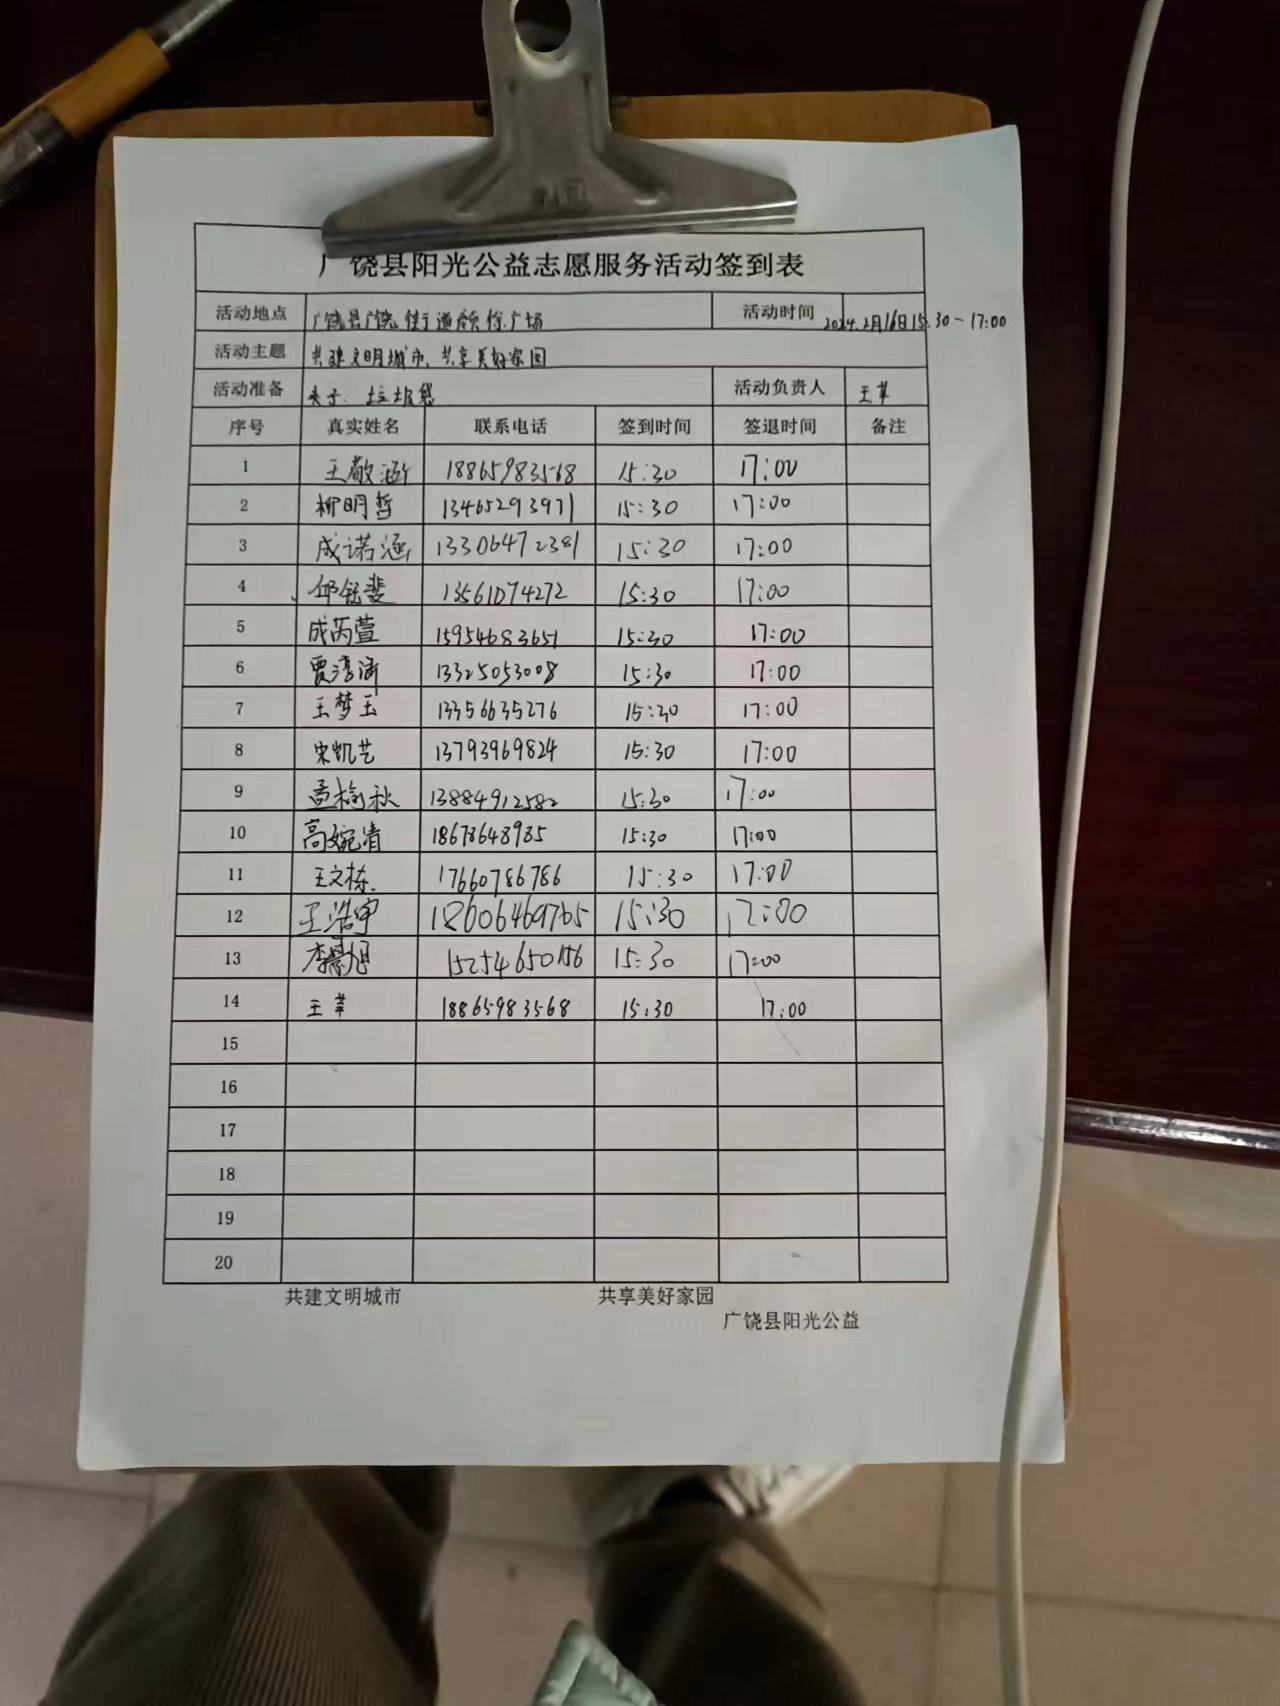 广饶县阳光公益志愿服务活动签到表
活动地点 广饶县广饶街道 广场 活动时间 2024.2月16日15:30-17:00
活动主题 共建文明城市、共享美好家园
活动准备 夹子、垃圾袋 活动负责人 王苹
序号 真实姓名 联系电话 签到时间 签退时间 备注
1 王敬涵 18865983568 15:30 17:00
2 柳明哲 13465293971 15:30 17:00
3 成诺涵 13306472381 15:30 17:00
4 13561074272 15:30 17:00
5 成芮萱 15954683651 15:30 17:00
6 贾淳涵 13325053008 15:30 17:00
7 王梦玉 13356635276 15:30 17:00
8 宋凯艺 13793969824 15:30 17:00
9 孟榆秋 13884912582 15:30 17:00
10 高婉清 1867648985 15:30 17:00
11 王文栋 17660786786 15:30 17:00
12 王浩宇 18606469765 15:30 17:00
13 李景旭 15254650156 15:30 17:00
14 王苹 18865983568 15:30 17:00
15
16
17
18
19
20
共建文明城市 共享美好家园
广饶县阳光公益